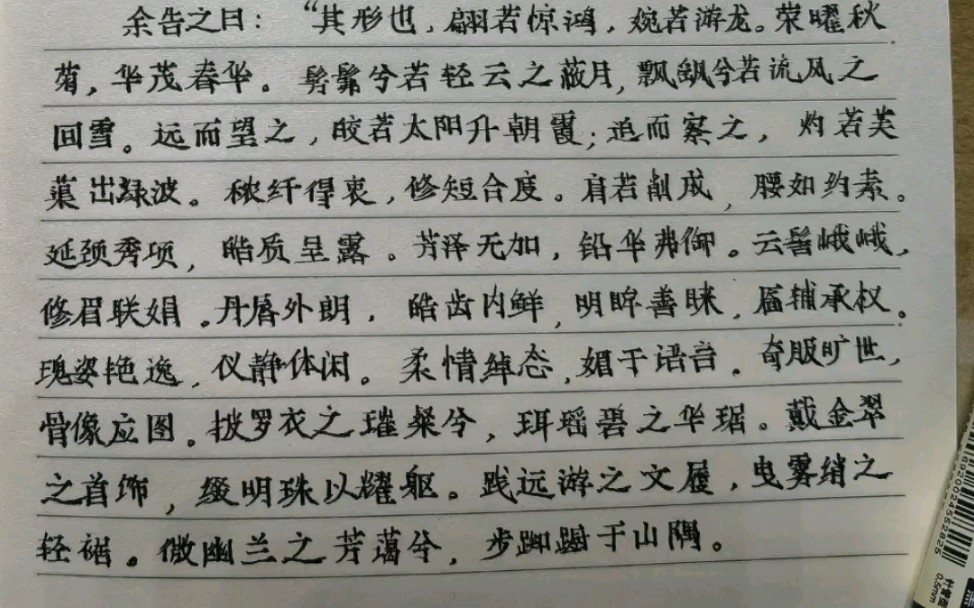 余告之曰："其形也，翩若惊鸿，婉若游龙。荣曜秋
菊，华茂春华。髣髴兮若轻云之蔽月，飘飖兮若流风之
回雪。远而望之，皎若太阳升朝霞；迫而察之，灼若芙
蕖出绿波。秾纤得衷，修短合度。肩若削成，腰如约素。
延颈秀项，皓质呈露。芳泽无加，铅华弗御。云髻峨峨，
修眉联娟。丹唇外朗，皓齿内鲜，明眸善睐，靥辅承权。
瑰姿艳逸，仪静体闲。柔情绰态，媚于语言。奇服旷世，
骨像应图。披罗衣之璀粲兮，珥瑶碧之华琚。戴金翠
之首饰，缀明珠以耀躯。践远游之文履，曳雾绡之
轻裾。微幽兰之芳蔼兮，步踟蹰于山隅。
6920024552825
0.5mm